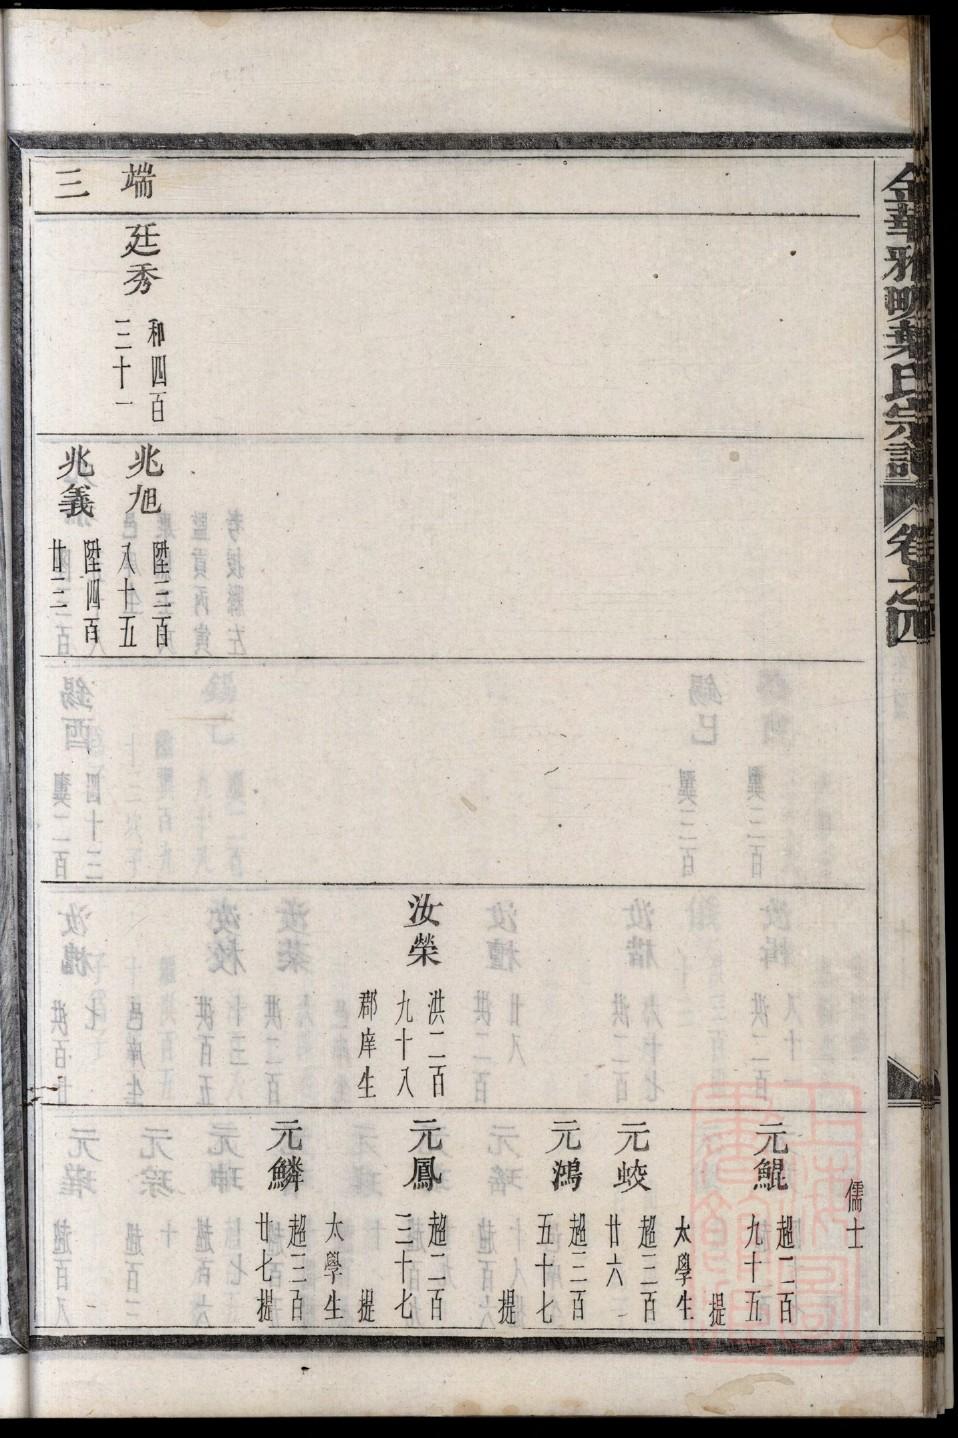 金華雅畈葉氏宗譜 卷之四
端
三
廷秀
和四百
三十一
兆旭
陞三百
八十五
兆義
陞四百
廿三
汝榮
洪二百
九十八
郡庠生
儒士
元鯤
超二百
九十五
提
太學生
元蛟
超三百
廿六
元鴻
超三百
五十七
提
元鳳
超二百
三十七
提
太學生
元鱗
超三百
廿七提